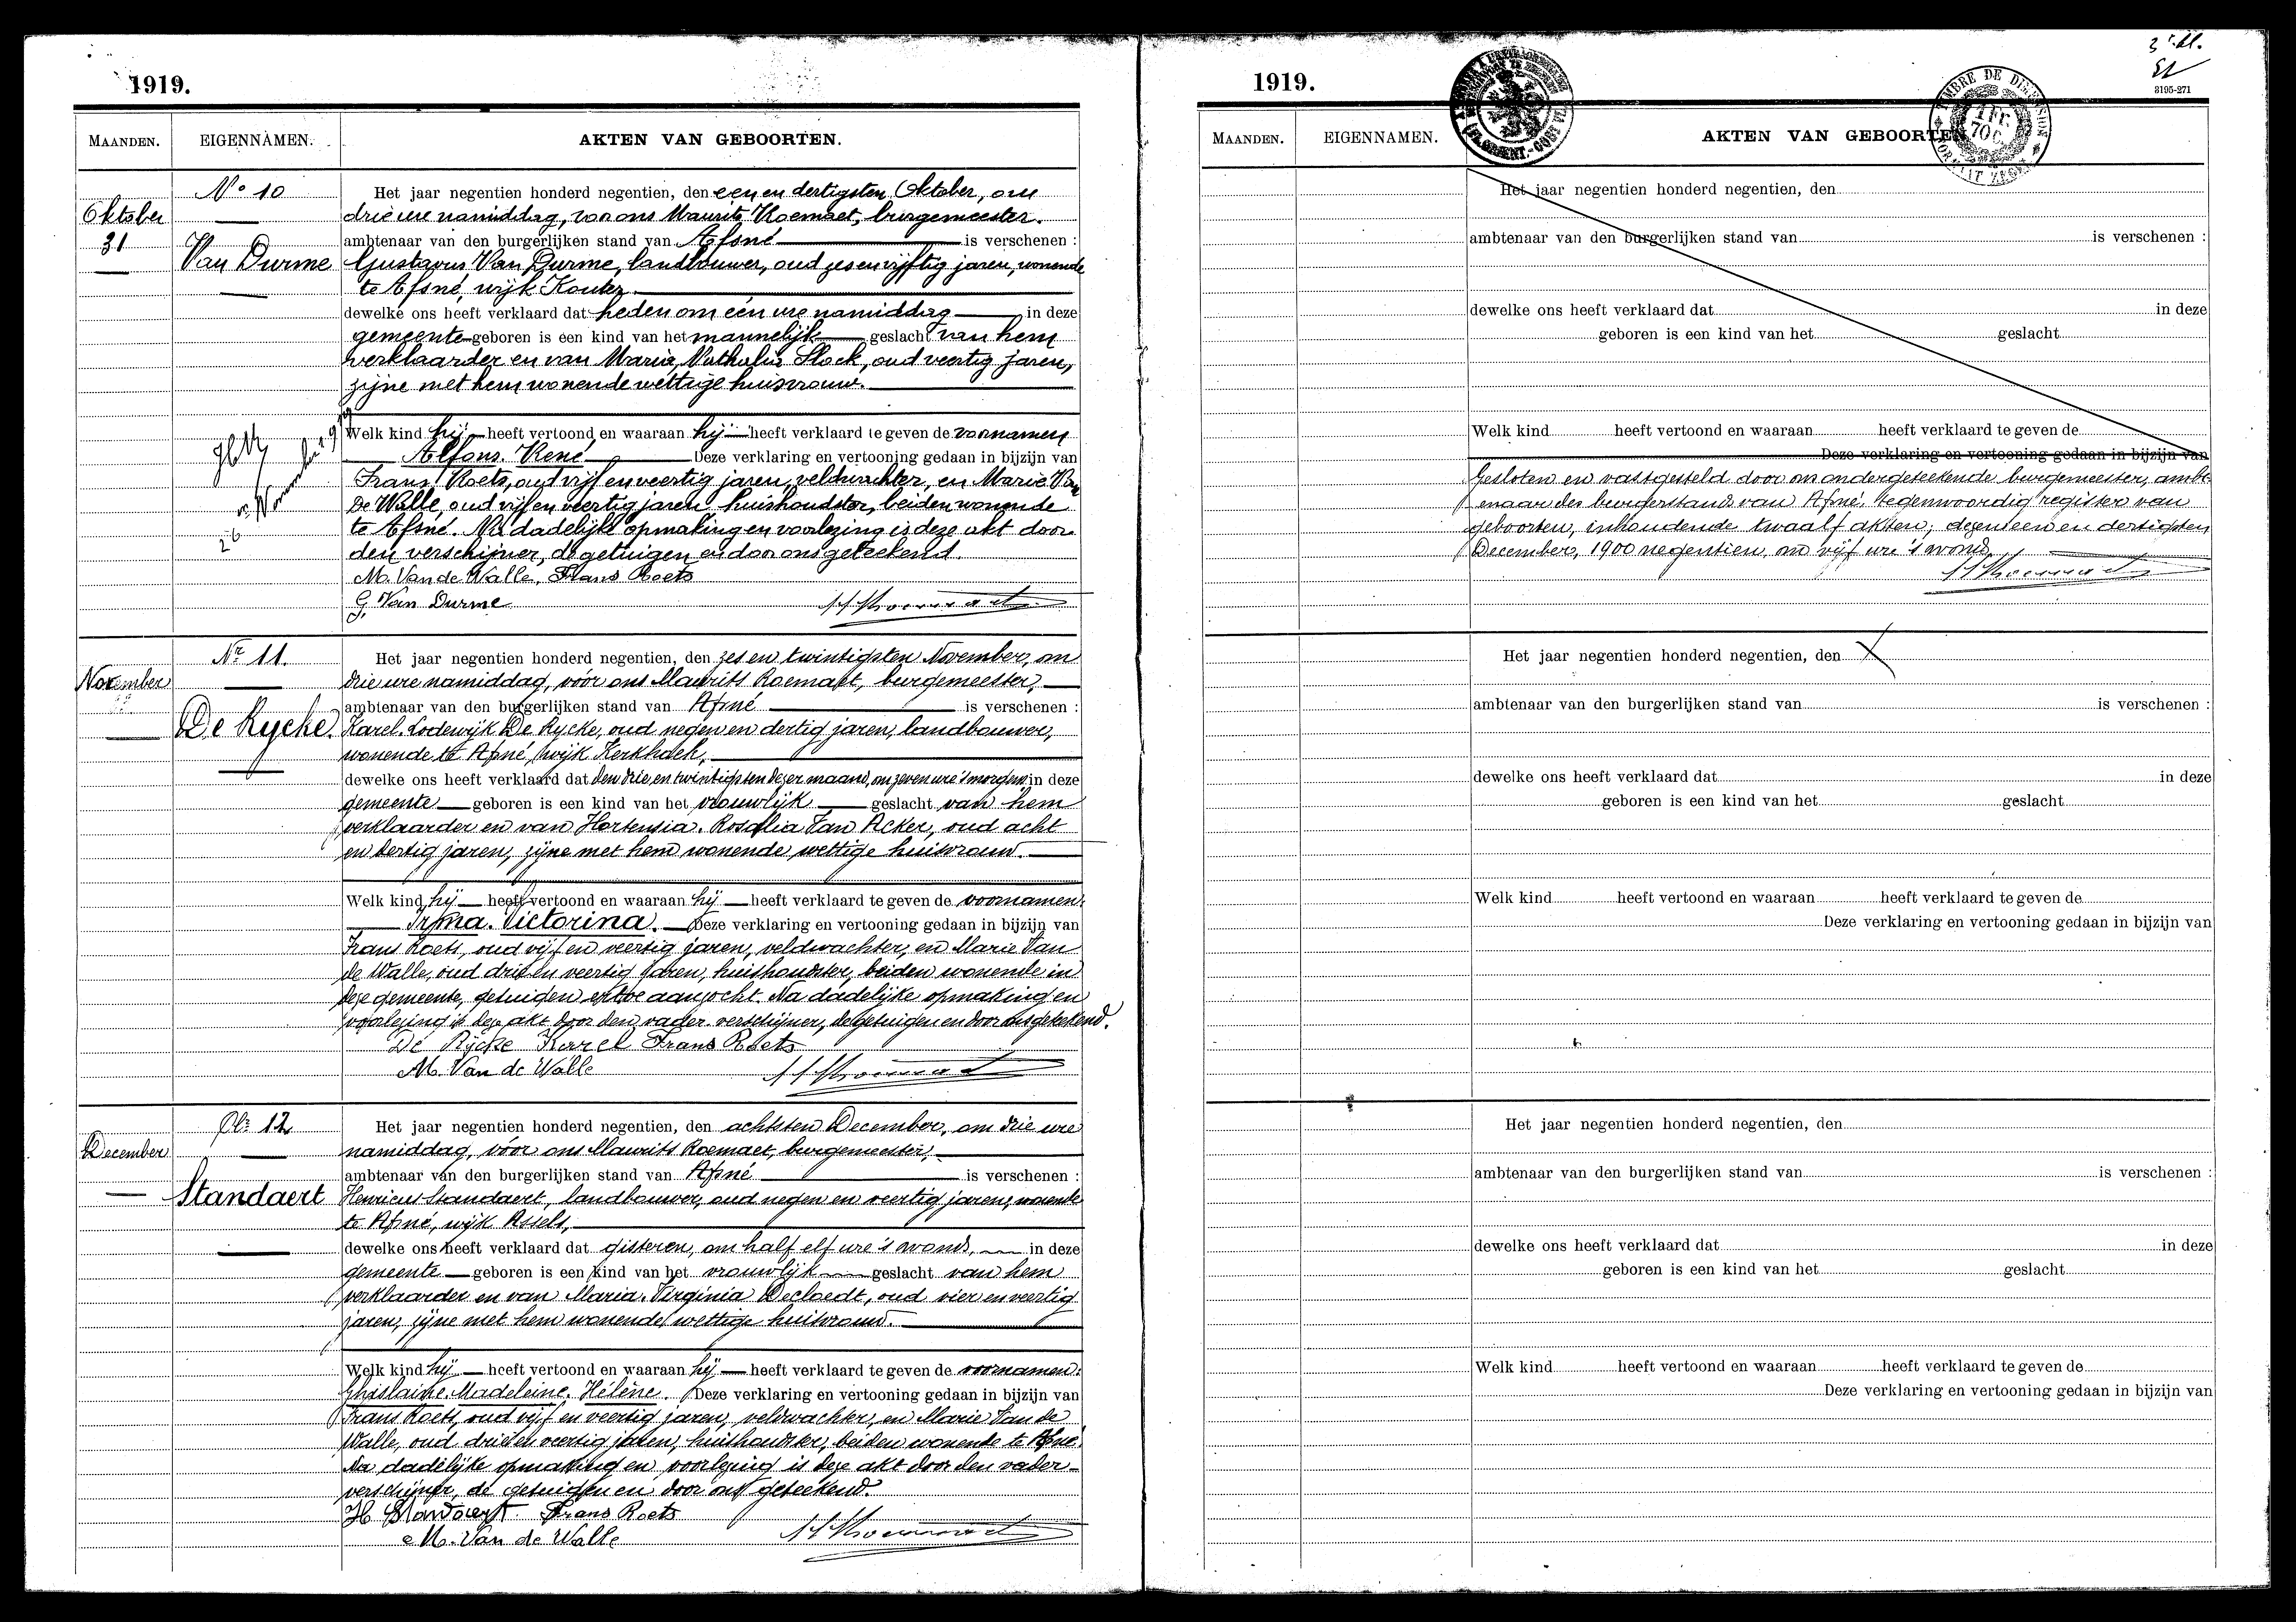 1919.
MAANDEN. EIGENNAMEN. AKTEN VAN GEBOORTEN.
No 10
Oktober
31
Van Durme
Het jaar negentien honderd negentien, den een en dertigsten Oktober, om
drie ure namiddag, voor ons Maurits Roemaet, burgemeester.
ambtenaar van den burgerlijken stand van Afsné is verschenen :
Gustavus Van Durme, landbouwer, oud zes en vijftig jaren, wonende
te Afsné, wijk Kouter
dewelke ons heeft verklaard dat heden om één ure namiddag in deze
gemeente geboren is een kind van het mannelijk geslacht van hem
verklaarder en van Maria, Nathalia Slock, oud veertig jaren,
zijne met hem wonende wettige huisvrouw.
Welk kind hij heeft vertoond en waaraan hij heeft verklaard te geven de voornamen
Alfons. René Deze verklaring en vertooning gedaan in bijzijn van
Frans Roets, oud vijf en veertig jaren, veldwachter, en Marie Van
De Walle, oud vijf en veertig jaren huishoudster, beiden wonende
te Afsné. Na dadelijke opmaking en voorlezing is deze akt door
den verschijner, de getuigen en door ons geteekend.
M. Van de Walle, Frans Roets
G. Van Durme
Nr 11.
November
De Rycke.
Het jaar negentien honderd negentien, den zes en twintigsten November, om
drie ure namiddag, vóór ons Maurits Roemaet, burgemeester,
ambtenaar van den burgerlijken stand van Afsné is verschenen :
Karel. Lodewijk De Rycke, oud negen en dertig jaren, landbouwer,
wonende te Afsné, wijk Kerkhoek,
dewelke ons heeft verklaard dat den drie en twintigsten dezer maand, om zeven ure 's morgens, in deze
gemeente geboren is een kind van het vrouwlijk geslacht van hem
verklaarder en van Hortensia. Rosalia Van Acker, oud acht
en dertig jaren, zijne met hem wonende wettige huisvrouw.
Welk kind hij heeft vertoond en waaraan hij heeft verklaard te geven de voornamen.
Irma. Victorina. Deze verklaring en vertooning gedaan in bijzijn van
Frans Roets, oud vijf en veertig jaren, veldwachter, en Marie Van
de Walle, oud drie en veertig jaren, huishoudster, beiden wonende in
deze gemeente, getuigen ertoe aanzocht. Na dadelijke opmaking en
voorlezing is deze akt door den vader verschijner, de getuigen en door ons geteekend.
De Rycke Karel Frans Roets
M. Van de Walle
Nr 12
December
Standaert
Het jaar negentien honderd negentien, den achtsten December, om drie ure
namiddag, vóór ons Maurits Roemaet, burgemeester,
ambtenaar van den burgerlijken stand van Afsné is verschenen :
Henricus Standaert, landbouwer, oud negen en veertig jaren, wonende
te Afsné, wijk Assels,
dewelke ons heeft verklaard dat gisteren, om half elf ure 's avonds, in deze
gemeente geboren is een kind van het vrouwlijk geslacht van hem
verklaarder en van Maria. Virginia Decloedt, oud vier en veertig
jaren, zijne met hem wonende wettige huisvrouw.
Welk kind hij heeft vertoond en waaraan hij heeft verklaard te geven de voornamen.
Ghislaine. Madeleine. Hélène. Deze verklaring en vertooning gedaan in bijzijn van
Frans Roets, oud vijf en veertig jaren, veldwachter, en Marie Van de
Walle, oud drie en veertig jaren, huishoudster, beiden wonende te Afsné.
Na dadelijke opmaking en voorlezing is deze akt door den vader-
verschijner, de getuigen en door ons geteekend.
H Standaert Frans Roets
M. Van de Walle
1919.
3195-271
MAANDEN. EIGENNAMEN. AKTEN VAN GEBOORTEN
Het jaar negentien honderd negentien, den
ambtenaar van den burgerlijken stand van is verschenen :
dewelke ons heeft verklaard dat in deze
geboren is een kind van het geslacht
Welk kind heeft vertoond en waaraan heeft verklaard te geven de
Deze verklaring en vertooning gedaan in bijzijn van
Gesloten en vastgesteld door ons ondergeteekende burgemeester, ambt-
enaar des burgerstands van Afsné, tegenwoordig register van
geboorten, inhoudende twaalf akten, dezen een en dertigsten
December, 1900 negentien, om vijf ure 's avonds
Het jaar negentien honderd negentien, den
ambtenaar van den burgerlijken stand van is verschenen :
dewelke ons heeft verklaard dat in deze
geboren is een kind van het geslacht
Welk kind heeft vertoond en waaraan heeft verklaard te geven de
Deze verklaring en vertooning gedaan in bijzijn van
Het jaar negentien honderd negentien, den
ambtenaar van den burgerlijken stand van is verschenen :
dewelke ons heeft verklaard dat in deze
geboren is een kind van het geslacht
Welk kind heeft vertoond en waaraan heeft verklaard te geven de
Deze verklaring en vertooning gedaan in bijzijn van